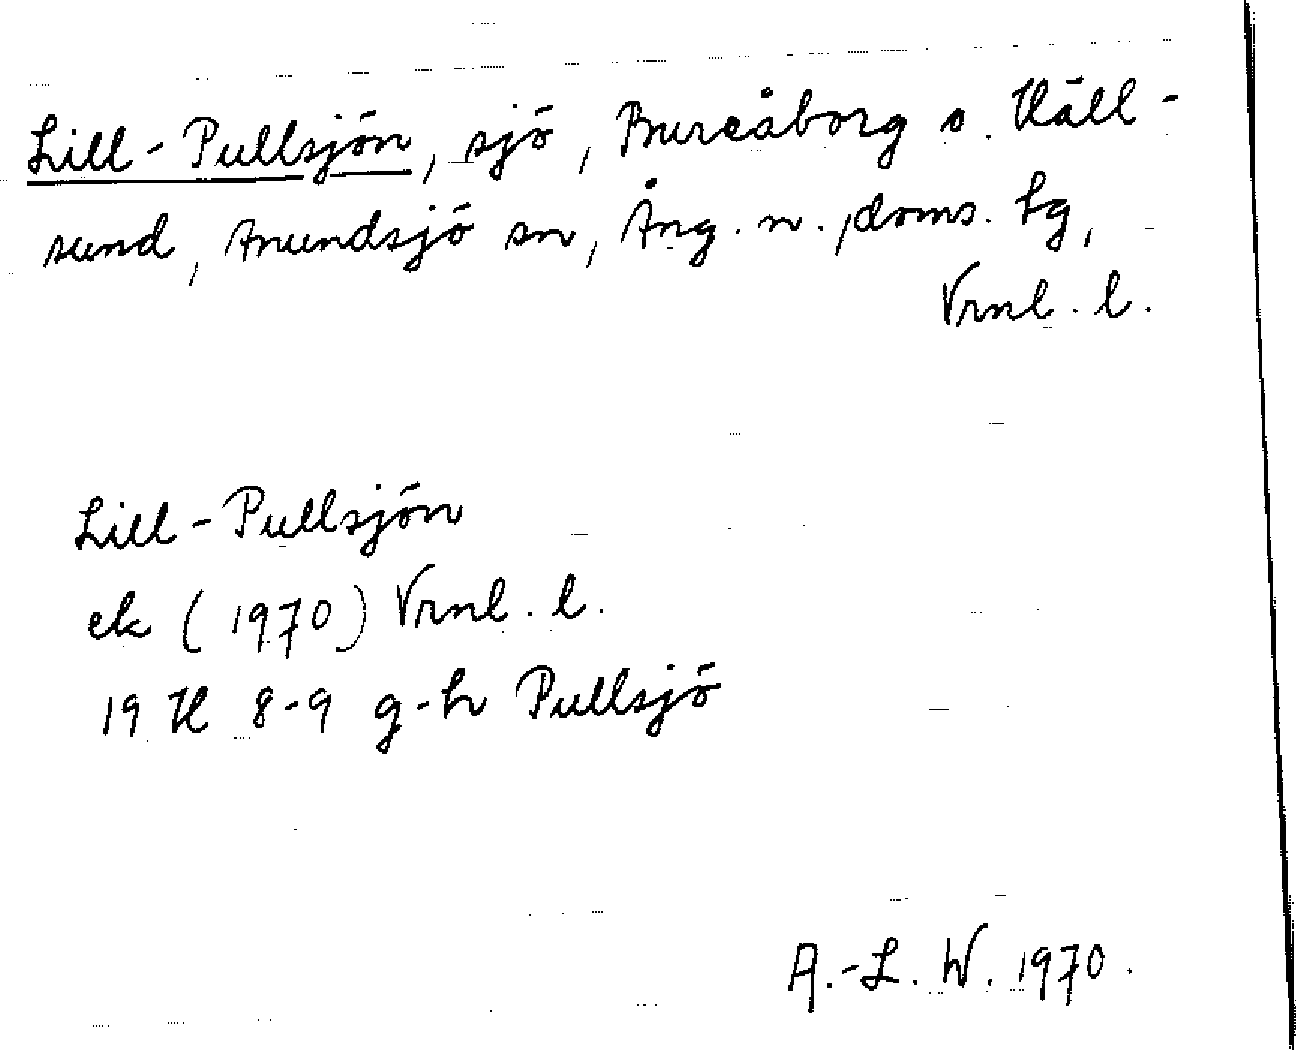 Lill-Pullsjön, sjö, Bureåborg o. Häll-
sund, Anundsjö sn, Ång. n., doms. hg,
Vrnl. l.
Lill-Pullsjön
ek (1970) Vrnl. l.
19 H 8-9 g-h Pullsjö
A.-L. W. 1970.